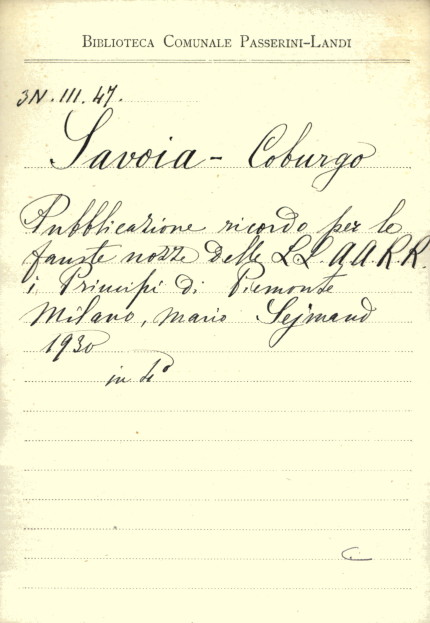 BIBLIOTECA COMUNALE PASSERINI-LANDI
3N.III.47.
Savoia - Coburgo
Pubblicazione ricordo per le
fauste nozze delle LL.AA.RR.
i Principi di Piemonte
Milano, Mario Sejmand
1930
in 4º